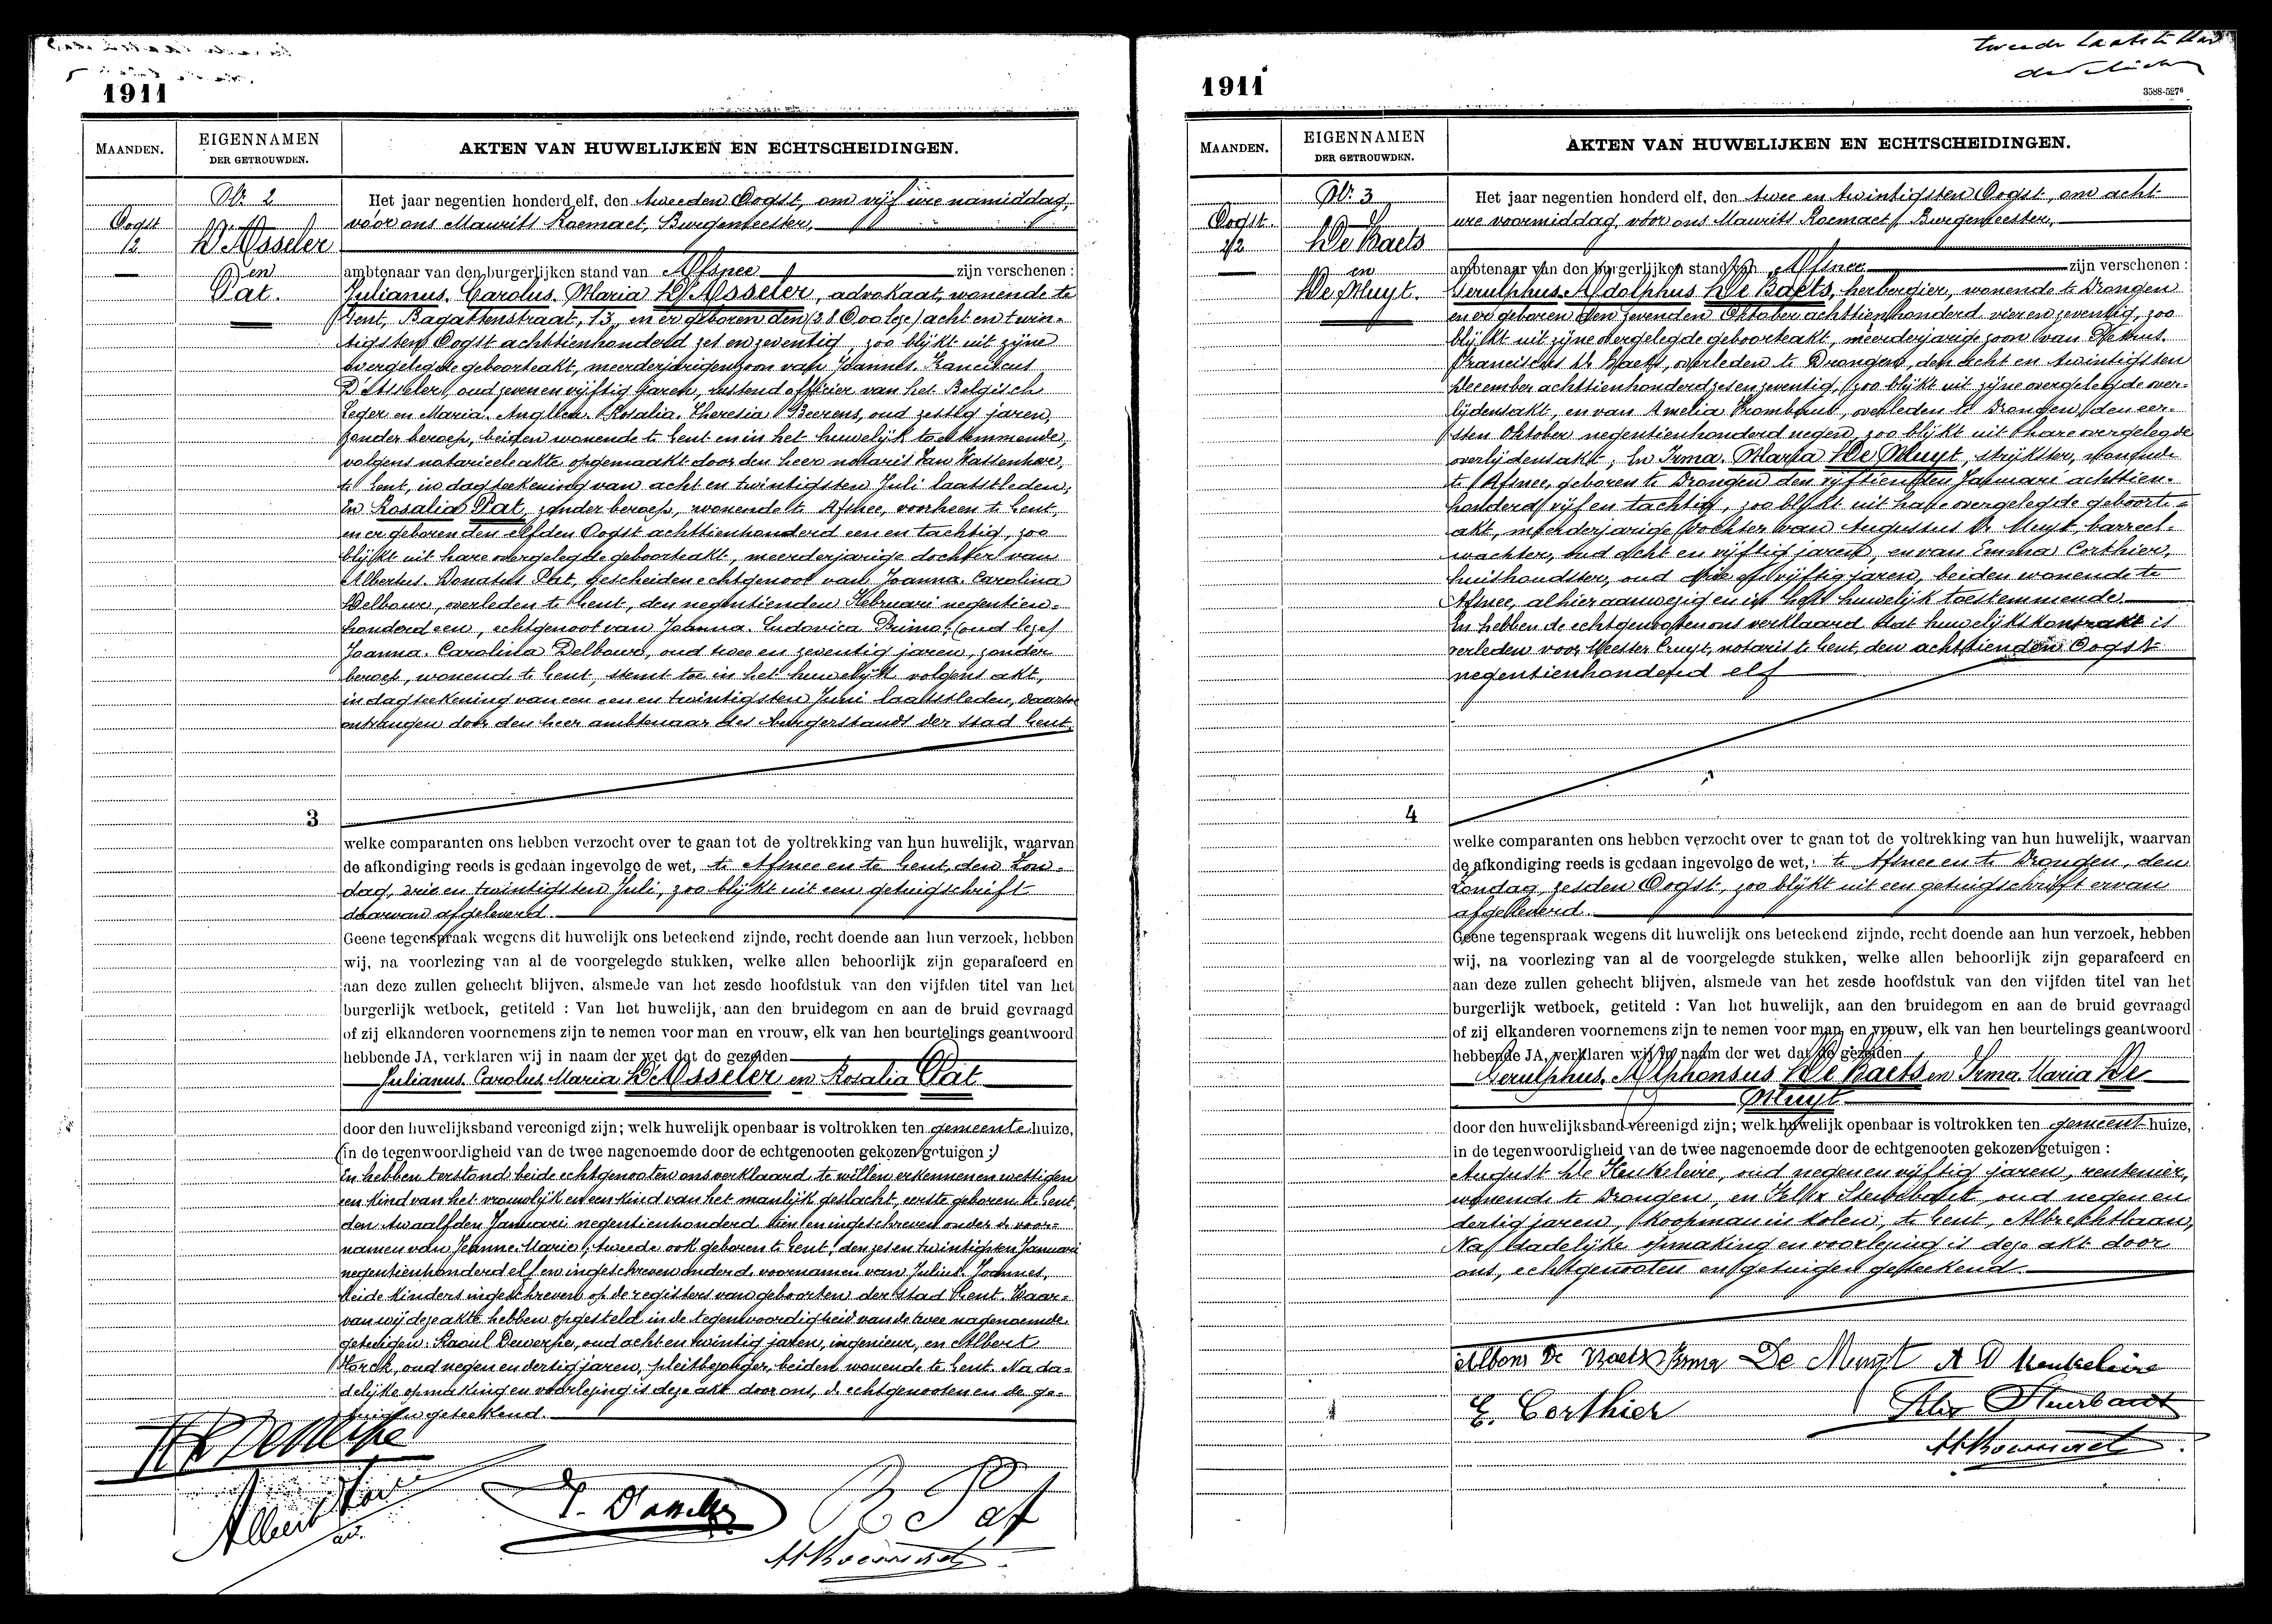 1911
MAANDEN.
EIGENNAMEN
DER GETROUWDEN.
AKTEN VAN HUWELIJKEN EN ECHTSCHEIDINGEN.
Nr. 2
Oogst
/2
D'Asseler
en
Pat.
Het jaar negentien honderd elf, den tweeden Oogst, om vijf ure namiddag,
vóór ons Maurits Roemaet, Burgemeester,
ambtenaar van den burgerlijken stand van Afsnee zijn verschenen :
Julianus. Carolus. Maria D'Asseler, advokaat, wonende te
Gent, Bagattenstraat, 13, en er geboren den (28 Oo lees) acht en twin-
tigsten Oogst achttienhonderd zes en zeventig, zoo blijkt uit zijne
overgelegde geboorteakt, meerderjarigen zoon van Joannes. Franciscus
D'Asseler, oud zeven en vijftig jaren, rustend officier van het Belgisch
Leger en Maria. Rosalia. Theresia Beerens, oud zestig jaren,
zonder beroep, beiden wonende te Gent en in het huwelijk toestemmende,
volgens notarieele akte opgemaakt door den heer notaris Van Wassenhove,
te Gent, in dagteekening van acht en twintigsten Juli laatstleden;
En Rosalia Pat, zonder beroep, wonende te Afsnee, voorheen te Gent,
en er geboren den elfden Oogst achttienhonderd een en tachtig, zoo
blijkt uit hare overgelegde geboorteakt, meerderjarige dochter van
Albertus. Donatus Pat, gescheiden echtgenoot van Joanna. Carolina
Delbouw, overleden te Gent, den negentienden Februari negentien-
honderd een, echtgenoot van Joanna. Ludovica Primo; (oud lees)
Joanna. Carolina Delbouw, oud twee en zeventig jaren, zonder
beroep, wonende te Gent, stemt toe in het huwelijk volgens akt,
in dagteekening van een en twintigsten Juni laatstleden, daartoe
ontvangen door den heer ambtenaar des burgerstands der stad Gent.
3
welke comparanten ons hebben verzocht over te gaan tot de voltrekking van hun huwelijk, waarvan
de afkondiging reeds is gedaan ingevolge de wet, te Afsnee en te Gent, den Zon-
dag, drie en twintigsten Juli, zoo blijkt uit een getuigschrift
daarvan afgeleverd.
Geene tegenspraak wegens dit huwelijk ons beteekend zijnde, recht doende aan hun verzoek, hebben
wij, na voorlezing van al de voorgelegde stukken, welke allen behoorlijk zijn geparafeerd en
aan deze zullen gehecht blijven, alsmede van het zesde hoofdstuk van den vijfden titel van het
burgerlijk wetboek, getiteld : Van het huwelijk, aan den bruidegom en aan de bruid gevraagd
of zij elkanderen voornemens zijn te nemen voor man en vrouw, elk van hen beurtelings geantwoord
hebbende JA, verklaren wij in naam der wet dat de gezeiden
Julianus. Carolus. Maria D'Asseler en Rosalia Pat
door den huwelijksband vereenigd zijn; welk huwelijk openbaar is voltrokken ten gemeentehuize,
(in de tegenwoordigheid van de twee nagenoemde door de echtgenooten gekozen getuigen :)
En hebben terstond beide echtgenooten ons verklaard te willen erkennen en wettigen
een kind van het vrouwlijk en een kind van het manlijk geslacht, eerste geboren te Gent,
den twaalfden Januari negentienhonderd tien en ingeschreven onder de voor-
namen van Jeanne. Marie; tweede ook geboren te Gent, den zes en twintigsten Januari
negentienhonderd elf en ingeschreven onder de voornamen van Julius. Joannes,
beide kinders ingeschreven op de registers van geboorten der stad Gent. Waar-
van wij deze akte hebben opgesteld in de tegenwoordigheid van de twee nagenoemde
getuigen: Raoul Dewerpe, oud acht en twintig jaren, ingenieur, en Albert
Horck, oud negen en dertig jaren, pleitbezorger, beiden wonende te Gent. Na da-
delijke opmaking en voorlezing is deze akt door ons, de echtgenooten en de ge-
tuigen geteekend.
R Dewerpe
J. D'asseler
R Pat
1911
3588-527⁶
MAANDEN.
EIGENNAMEN
DER GETROUWDEN.
AKTEN VAN HUWELIJKEN EN ECHTSCHEIDINGEN.
Nr. 3
Oogst.
22
De Baets
en
De Muyt.
Het jaar negentien honderd elf, den twee en twintigsten Oogst, om acht
ure voormiddag, vóór ons Maurits Roemaet, Burgemeester,
ambtenaar van den burgerlijken stand van Afsnee zijn verschenen :
Gerulphus. Adolphus De Baets, herbergier, wonende te Drongen
en er geboren den zevenden Oktober achttienhonderd vier en zeventig, zoo
blijkt uit zijne overgelegde geboorteakt, meerderjarige zoon van Petrus.
Franciscus De Baets, overleden te Drongen, den acht en twintigsten
December achttienhonderd zes en zeventig, zoo blijkt uit zijne overgelegde over-
lijdensakt, en van Amelia Trombaut, overleden te Drongen, den eer-
sten Oktober negentienhonderd negen, zoo blijkt uit hare overgelegde
overlijdensakt; En Irma. Maria De Muyt, strijkster, wonende
te Afsnee, geboren te Drongen den vijftienden Januari achttien-
honderd vijf en tachtig, zoo blijkt uit hare overgelegde geboorte-
akt, meerderjarige dochter van Augustus De Muyt, barreel-
wachter, oud acht en vijftig jaren, en van Emma Corthier,
huishoudster, oud drie en vijftig jaren, beiden wonende te
Afsnee, alhier aanwezig en in hest huwelijk toestemmende.
En hebben de echtgenooten ons verklaard dat huwelijkskontrakt is
verleden voor Meester Cruyt, notaris te Gent, den achttienden Oogst
negentienhonderd elf
4
welke comparanten ons hebben verzocht over te gaan tot de voltrekking van hun huwelijk, waarvan
de afkondiging reeds is gedaan ingevolge de wet, te Afsnee en te Drongen, den
Zondag, zesden Oogst, zoo blijkt uit een getuigschrift ervan
afgeleverd.
Geene tegenspraak wegens dit huwelijk ons beteekend zijnde, recht doende aan hun verzoek, hebben
wij, na voorlezing van al de voorgelegde stukken, welke allen behoorlijk zijn geparafeerd en
aan deze zullen gehecht blijven, alsmede van het zesde hoofdstuk van den vijfden titel van het
burgerlijk wetboek, getiteld : Van het huwelijk, aan den bruidegom en aan de bruid gevraagd
of zij elkanderen voornemens zijn te nemen voor man en vrouw, elk van hen beurtelings geantwoord
hebbende JA, verklaren wij in naam der wet dat de gezeiden
Gerulphus. Alphonsus De Baets en Irma. Maria De
Muyt
door den huwelijksband vereenigd zijn; welk huwelijk openbaar is voltrokken ten gemeentehuize,
in de tegenwoordigheid van de twee nagenoemde door de echtgenooten gekozen getuigen :
August De Keukeleire, oud negen en vijftig jaren, rentenier,
wonende te Drongen, en Felix Steurbaut, oud negen en
dertig jaren, koopman in kolen, te Gent, Albrechtlaan,
Na dadelijke opmaking en voorlezing is deze akt door
ons, echtgenooten en getuigen geteekend.
Alfons De Baets Irma De Muyt A D Keukeleire
E. Corthier Felix Steurbaut
M Roemaet